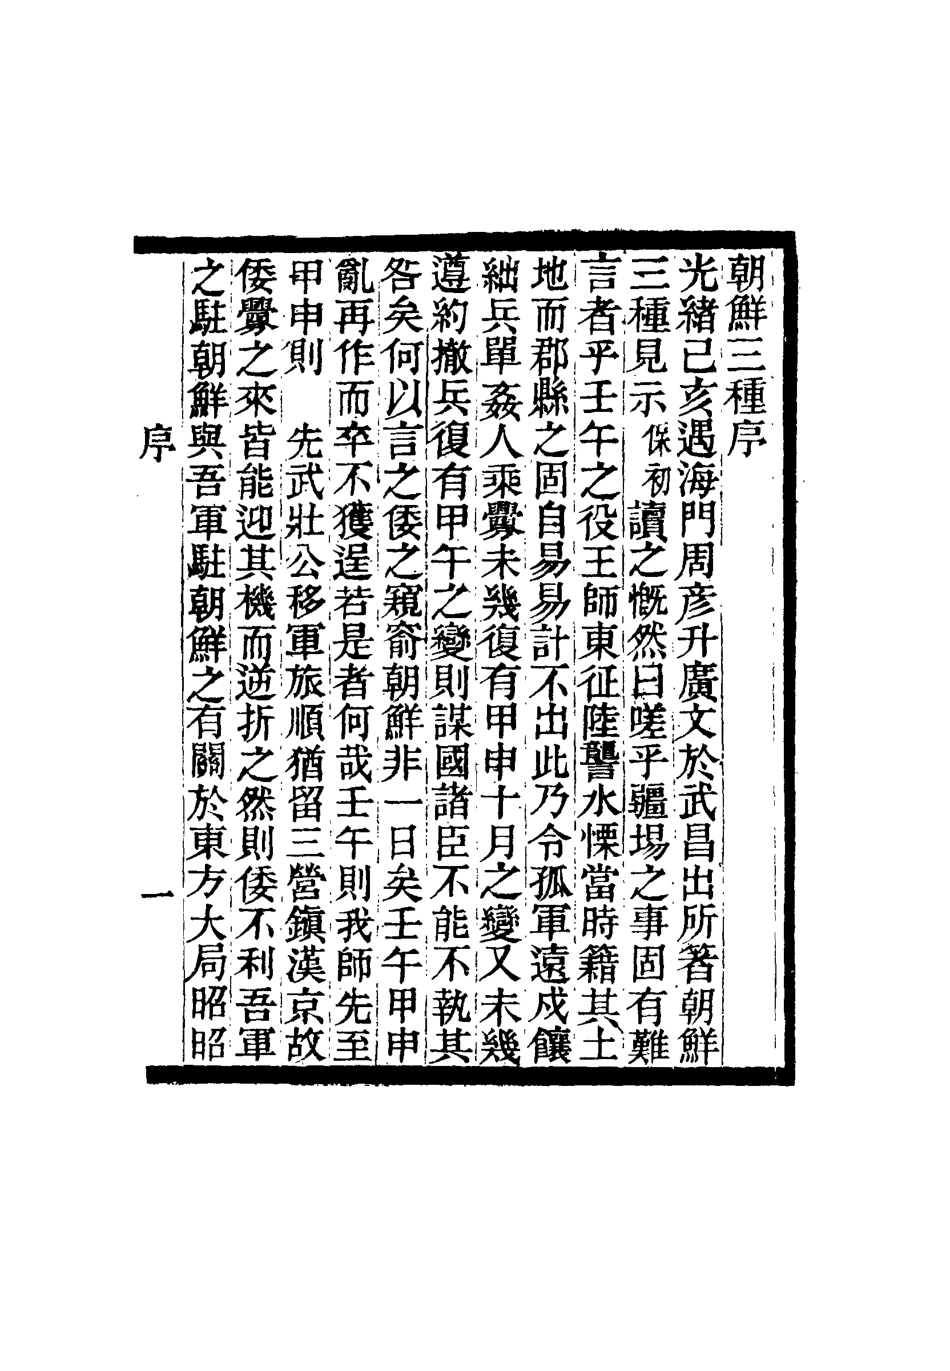 朝鮮三種序
光緒己亥遇海門周彥升廣文於武昌出所著朝鮮
三種見示保初讀之慨然曰嗟乎疆場之事固有難
言者乎壬午之役王師東征陸讋水慄當時籍其土
地而郡縣之固自易易計不出此乃令孤軍遠戍饟
絀兵單姦人乘釁未幾復有甲申十月之變又未幾
遵約撤兵復有甲午之變則謀國諸臣不能不執其
咎矣何以言之倭之窺窬朝鮮非一日矣壬午甲申
亂再作而卒不獲逞若是者何哉壬午則我師先至
甲申則　先武壯公移軍旅順猶留三營鎭漢京故
倭釁之來皆能迎其機而逆折之然則倭不利吾軍
之駐朝鮮與吾軍駐朝鮮之有關於東方大局昭昭
序
一